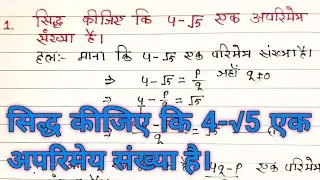 1. सिद्ध कीजिए कि 4-√5 एक अपरिमेय
संख्या है।
हल:- माना कि 4-√5 एक परिमेय संख्या है।
⇒ 4-√5 = p/q जहाँ q≠0
⇒ 4-p/q = √5
सिद्ध कीजिए कि 4-√5 एक
अपरिमेय संख्या है।